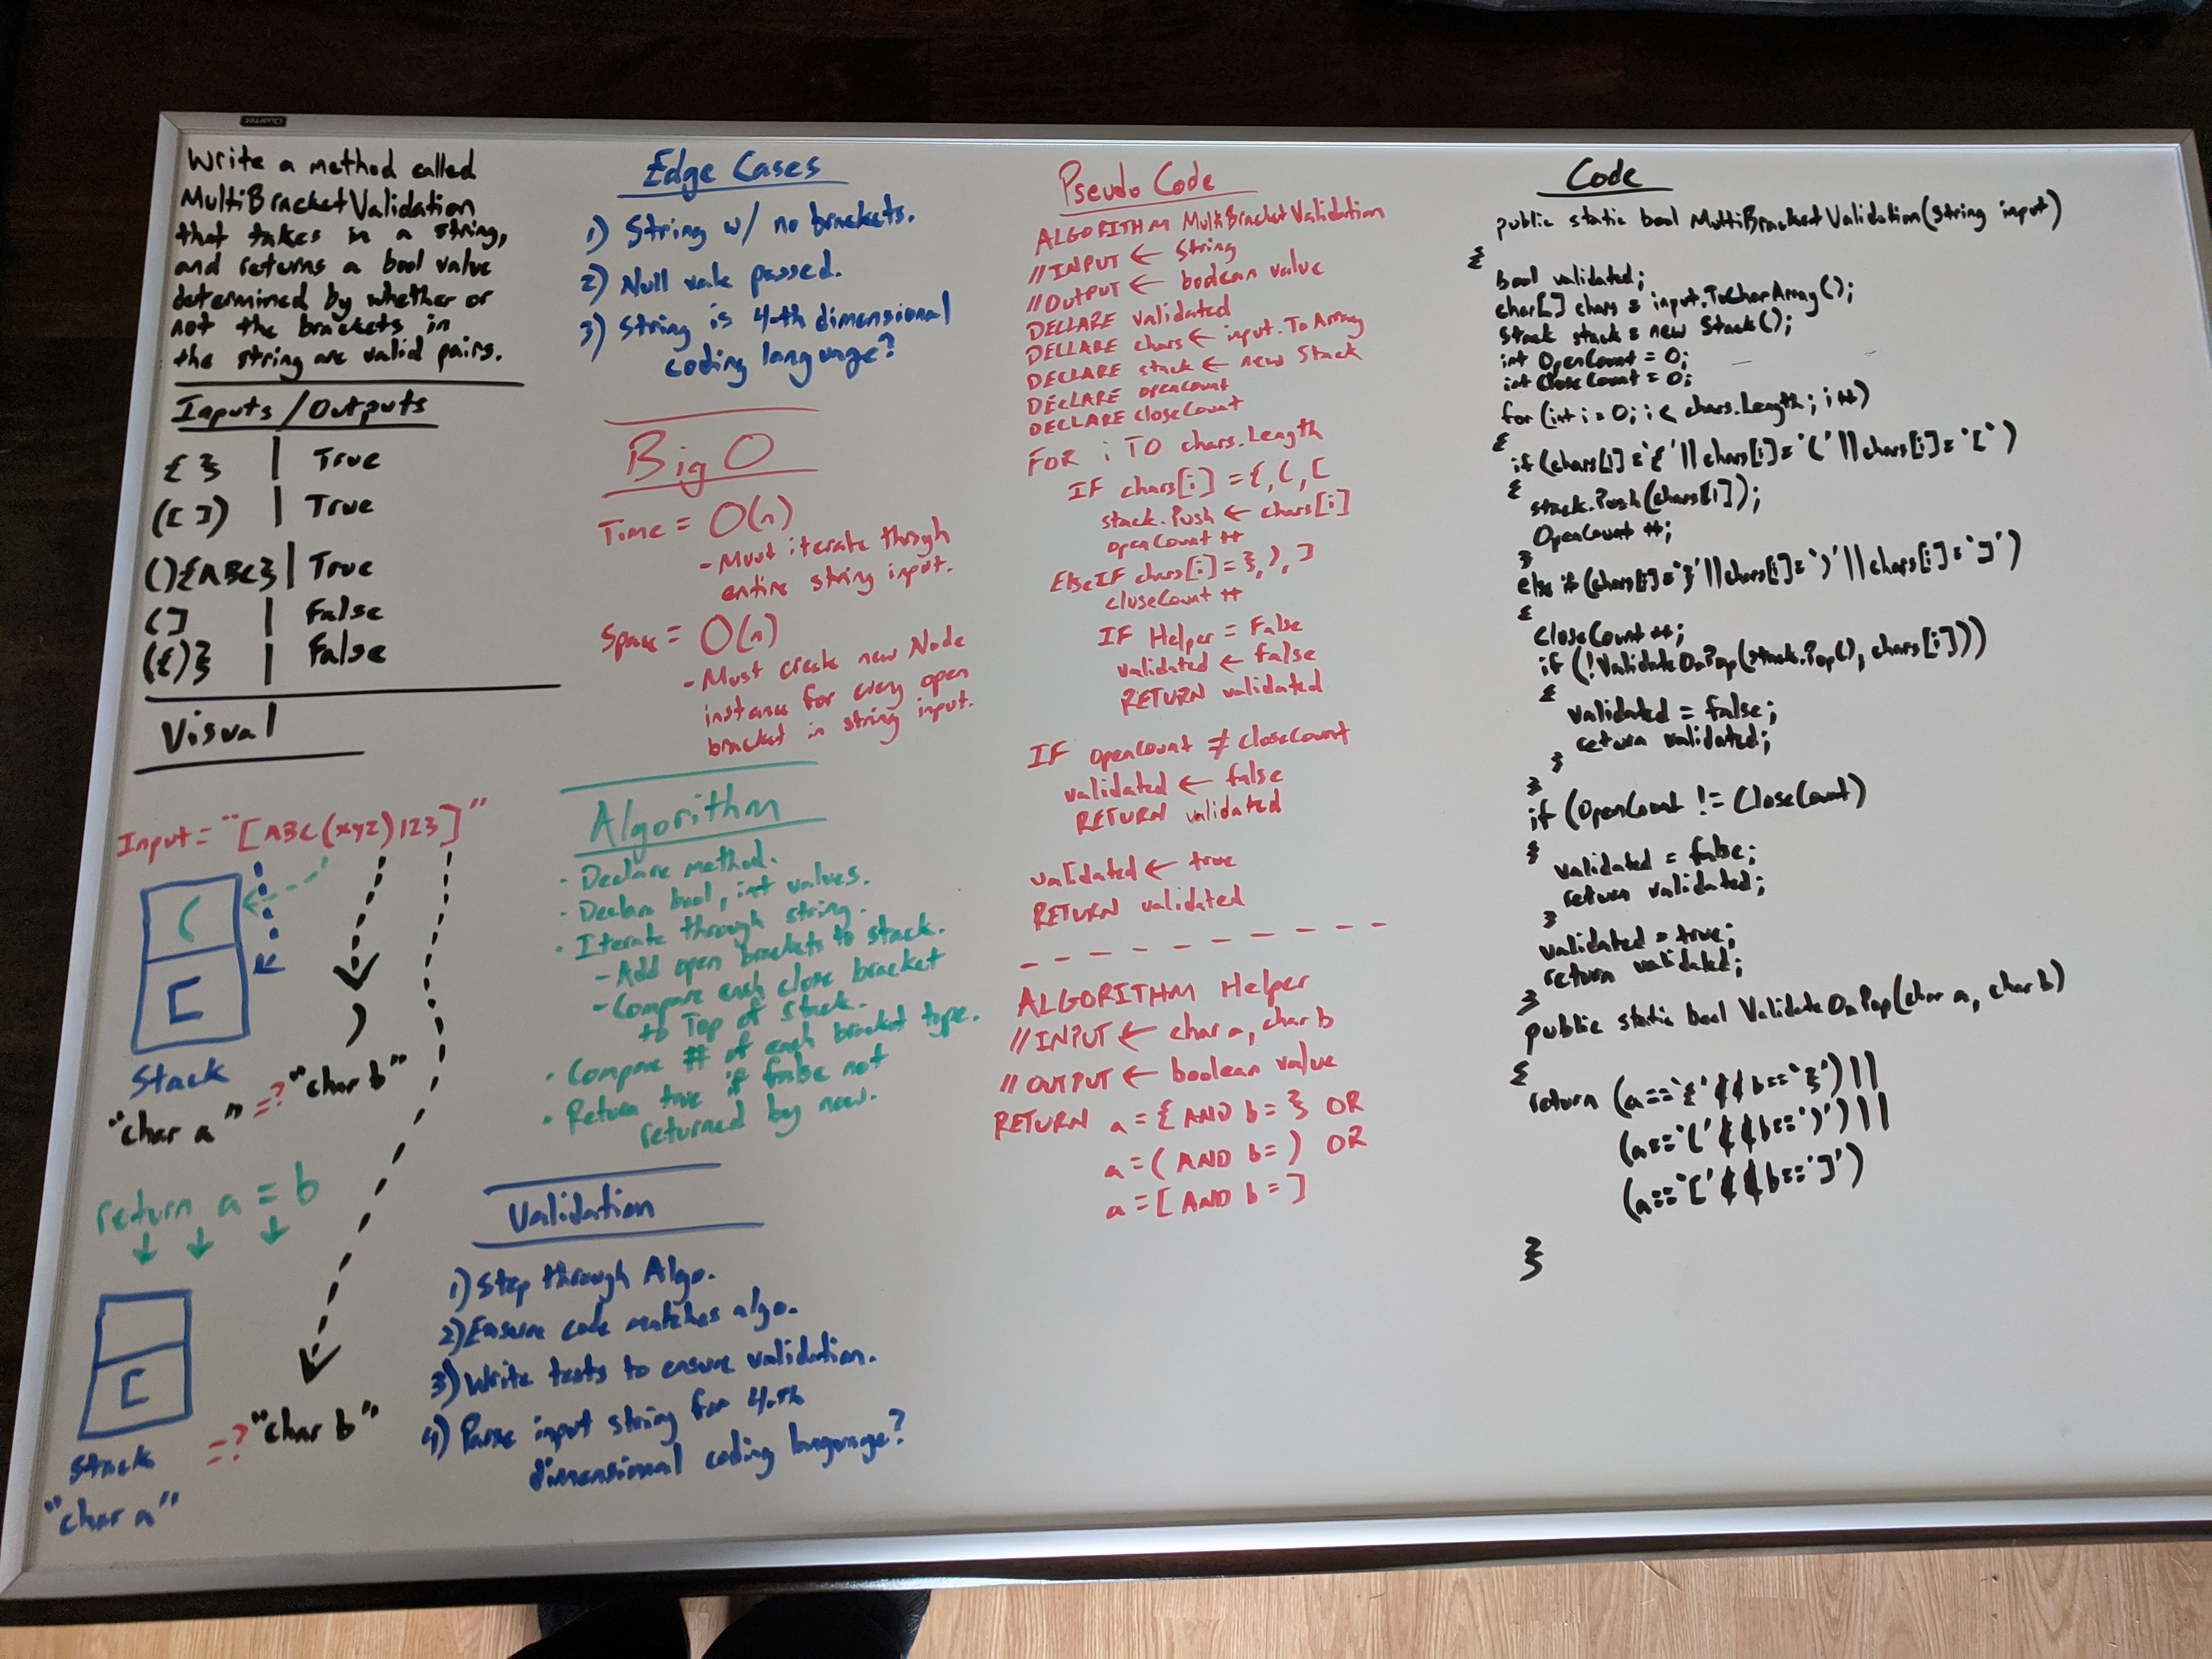 Write a method called
MultiBracketValidation
that takes in a string,
and returns a bool value
determined by whether or
not the brackets in
the string are valid pairs.
Inputs / Outputs
{ } | True
([ ]) | True
(){ABC} | True
( ] | False
({)} | False
Visual
Input = "[ABC(xyz)123]"
(
[
Stack
)
"char a" =? "char b"
return a = b
[
Stack
"char a"
=? "char b"
Edge Cases
1) String w/ no brackets.
2) Null vale passed.
3) String is 4-th dimensional
coding language?
Big O
Time = O(n)
- Must iterate through
entire string input.
Space = O(n)
- Must create new Node
instance for every open
bracket in string input.
Algorithm
· Declare method.
· Declare bool, int values.
· Iterate through string.
- Add open brackets to stack.
- Compare each close bracket
to Top of stack.
· Compare # of each bracket type.
· Return true if false not
returned by now.
Validation
1) Step through Algo.
2) Ensure code matches algo.
3) Write tests to ensure validation.
4) Parse input string for 4-th
dimensional coding language?
Pseudo Code
ALGORITHM MultiBracketValidation
//INPUT ← String
//OUTPUT ← boolean value
DECLARE validated
DECLARE chars ← input.ToArray
DECLARE stack ← new Stack
DECLARE openCount
DECLARE closeCount
FOR i TO chars.Length
IF chars[i] = {, (, [
stack.Push ← chars[i]
openCount ++
ElseIF chars[i] = }, ), ]
closeCount ++
IF Helper = False
validated ← false
RETURN validated
IF openCount ≠ closeCount
validated ← false
RETURN validated
validated ← true
RETURN validated
ALGORITHM Helper
//INPUT ← char a, char b
//OUTPUT ← boolean value
RETURN a = { AND b = } OR
a = ( AND b = ) OR
a = [ AND b = ]
Code
public static bool MultiBracketValidation(string input)
{
bool validated;
char[] chars = input.ToCharArray();
Stack stack = new Stack();
int OpenCount = 0;
int CloseCount = 0;
for (int i = 0; i < chars.Length; i++)
{
if (chars[i] = '{' || chars[i] = '(' || chars[i] = '[')
{
stack.Push(chars[i]);
OpenCount ++;
}
else if (chars[i] = '}' || chars[i] = ')' || chars[i] = ']')
{
CloseCount ++;
if (!ValidateOnPop(stack.Pop(), chars[i]))
{
validated = false;
return validated;
}
}
if (OpenCount != CloseCount)
{
validated = false;
return validated;
}
validated = true;
return validated;
}
public static bool ValidateOnPop(char a, char b)
{
return (a == '{' && b == '}') ||
(a == '(' && b == ')') ||
(a == '[' && b == ']')
}